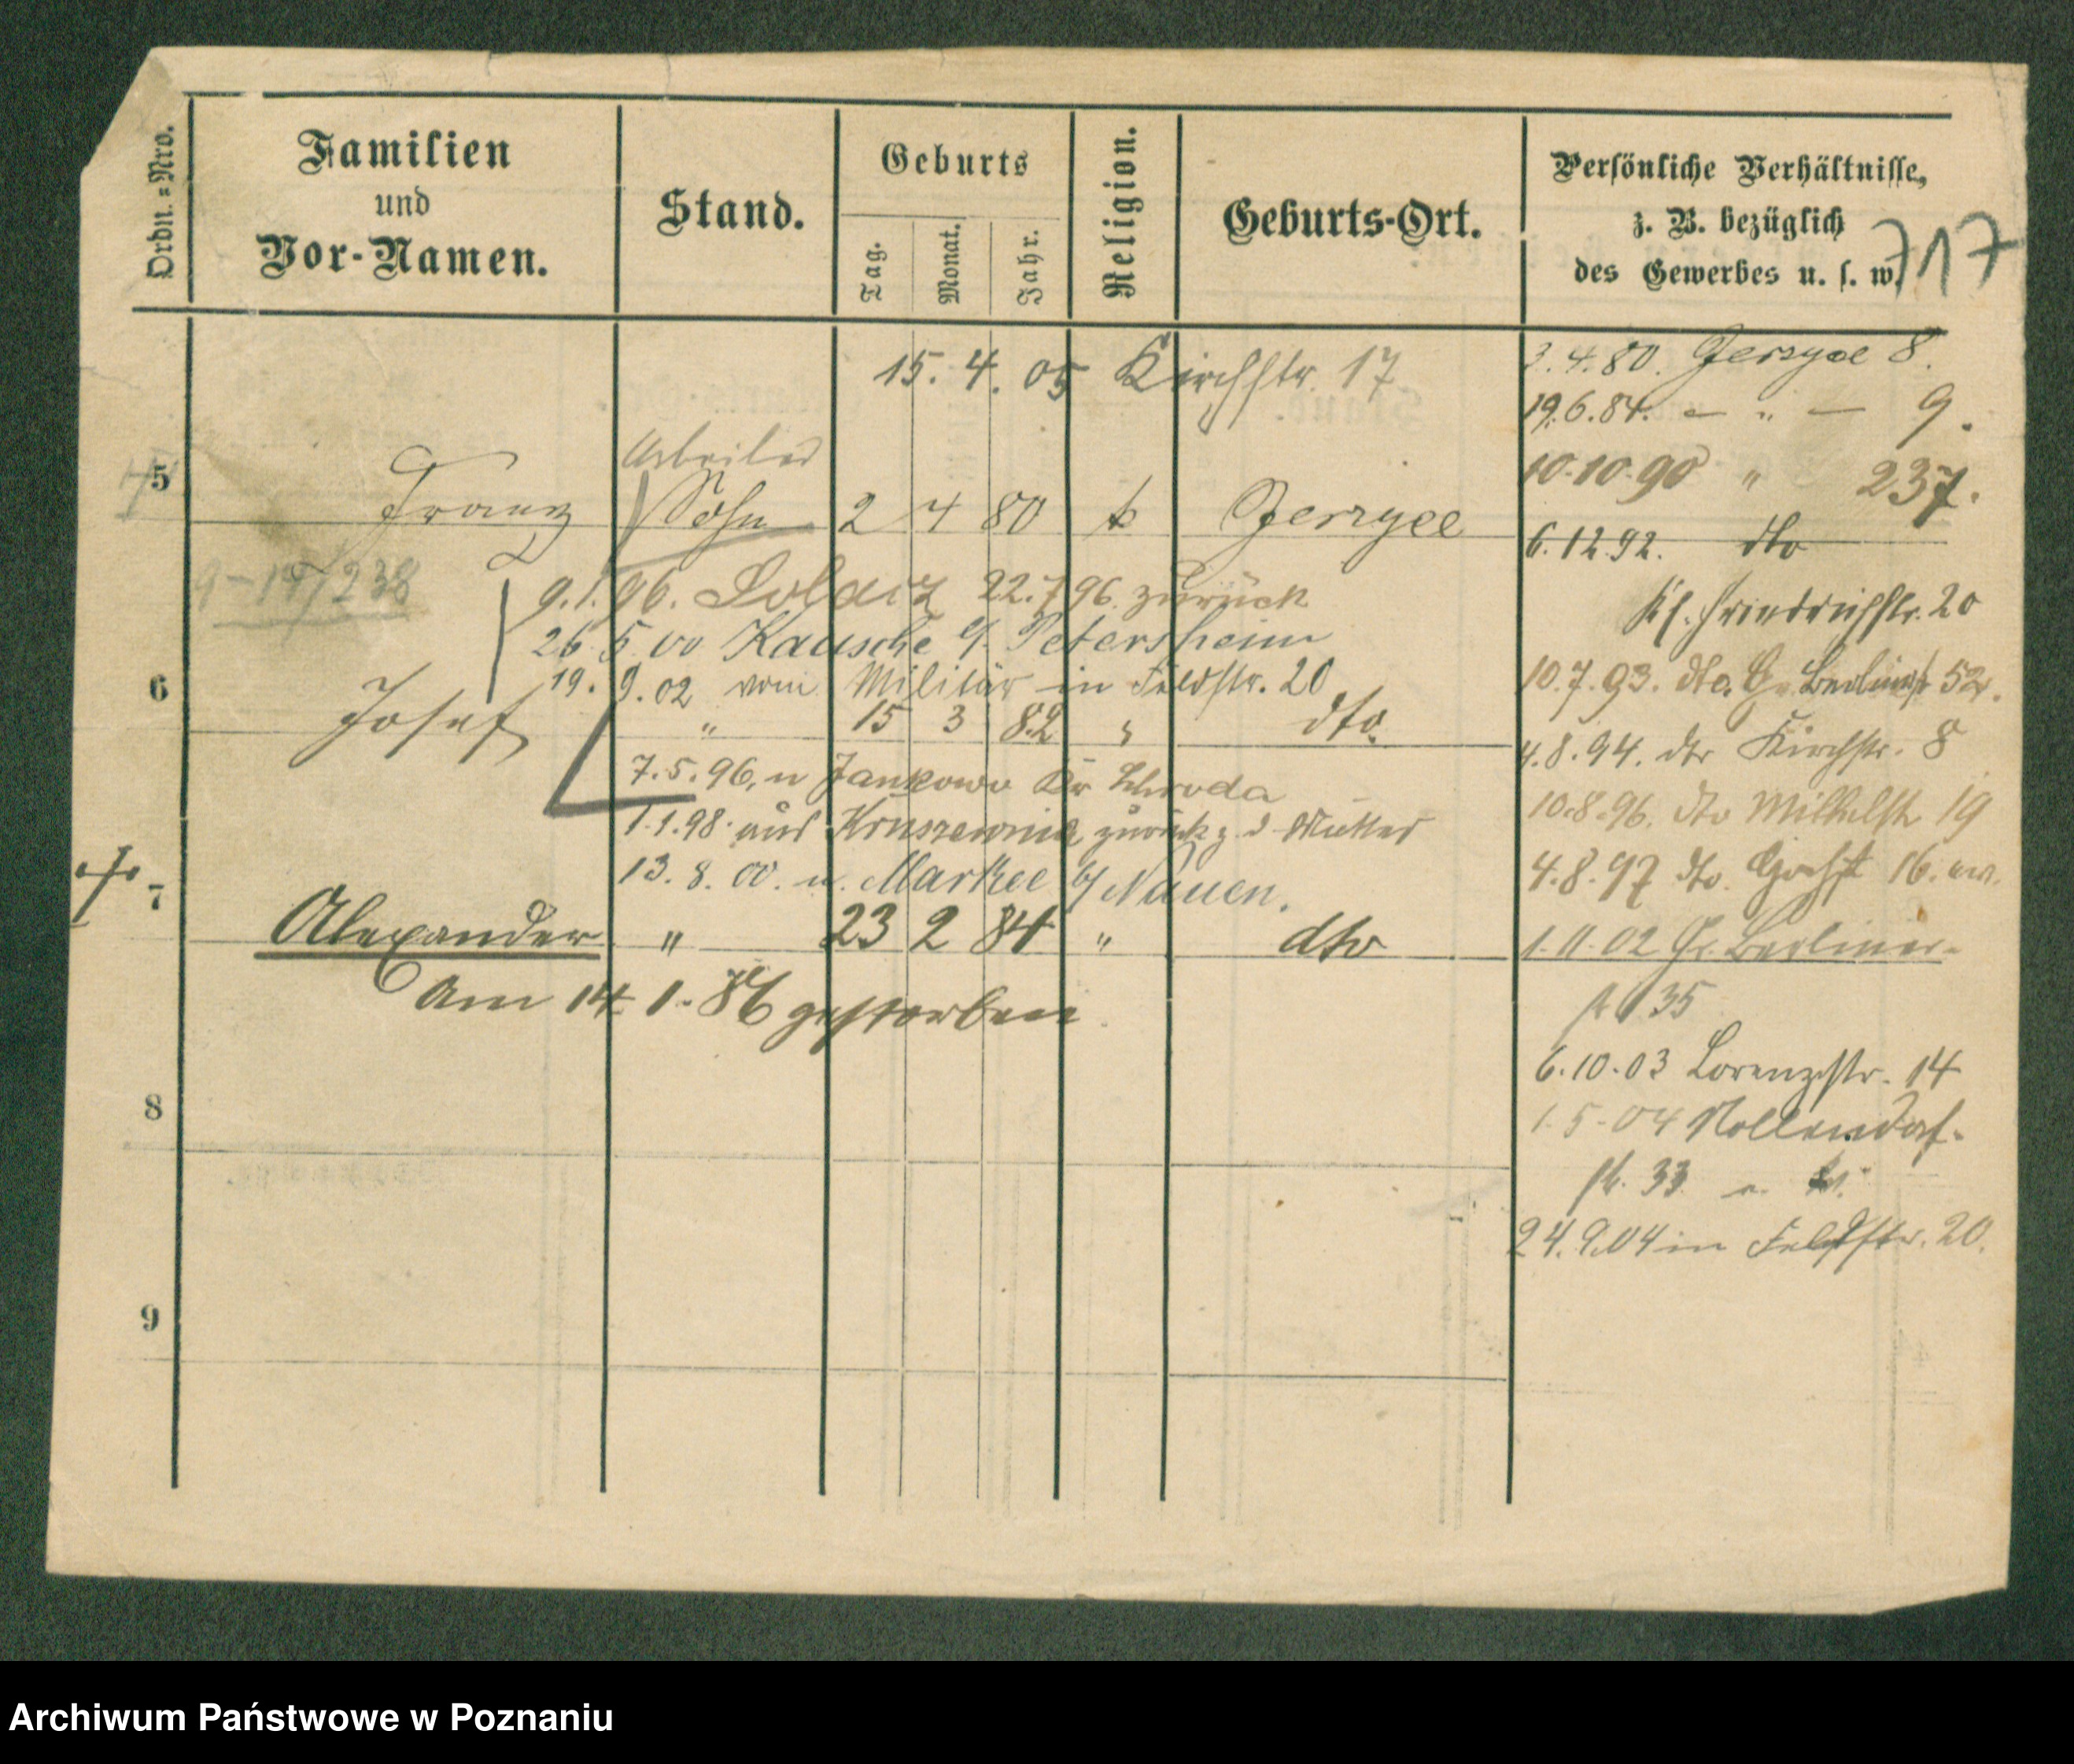 Ordn.=Nro.
Familien
und
Vor-Namen.
Stand.
Geburts
Tag.
Monat.
Jahr.
Religion.
Geburts-Ort.
Persönliche Verhältnisse,
z. B. bezüglich
des Gewerbes u. s. w.
717
15. 4. 05 Kirchstr. 17
3.4.80. Jerzyce 8.
19.6.84. — " — 9.
10.10.90 " 237.
Arbeiter
5 Franz Sohn 2 4 80 k Jerzyce
6.12.92. dto
Kf. Friedrichstr. 20
9.1.96. 22.7.96. zurück
26.5.00 Petersheim
19.9.02 vom Militär in Feldstr. 20
10.7.93. dto. Gr. Berlinerstr 52.
6 Josef " 15 3 82 " dto.
4.8.94. dto Kirchstr. 8
7.5.96. n Jankowo Kr Schroda
10.8.96. dto 19
1.1.98. aus zurück z. d. Mutter
4.8.97 dto. 16.
13.8.00. n. Markee b/ Nauen.
7 Alexander " 23 2 84 " dto
1.11.02 Gr. Berliner-
str 35
Am 14. 1. 86 gestorben
6.10.03 Lorenzstr. 14
8
1.5.04 Nollendorf-
str. 33
24.9.04 in Feldstr. 20.
9
Archiwum Państwowe w Poznaniu